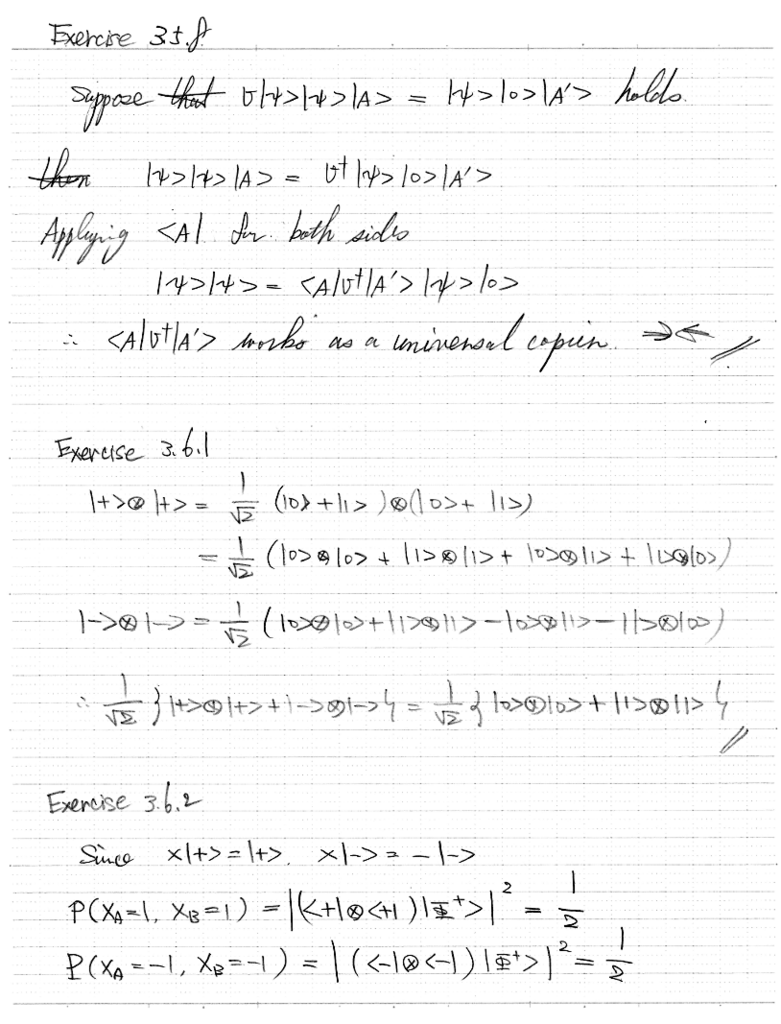 Exercise 3.5.8
Suppose that U|ψ>|ψ>|A> = |ψ>|0>|A'> holds.
then |ψ>|ψ>|A> = U†|ψ>|0>|A'>
Applying <A| for both sides
|ψ>|ψ> = <A|U†|A'>|ψ>|0>
∴ <A|U†|A'> works as a universal copier. →← //
Exercise 3.6.1
|+>⊗|+> = 1/√2 (|0>+|1>)⊗(|0>+|1>)
= 1/√2 (|0>⊗|0> + |1>⊗|1> + |0>⊗|1> + |1>⊗|0>)
|->⊗|-> = 1/√2 (|0>⊗|0>+|1>⊗|1>-|0>⊗|1>-|1>⊗|0>)
∴ 1/√2 {|+>⊗|+>+|->⊗|->} = 1/√2 {|0>⊗|0>+|1>⊗|1>} //
Exercise 3.6.2
Since X|+>=|+>, X|-> = -|->
P(X_A=1, X_B=1) = |(<+|⊗<+|)|Φ⁺>|² = 1/2
P(X_A=-1, X_B=-1) = |(<-|⊗<-|)|Φ⁺>|² = 1/2